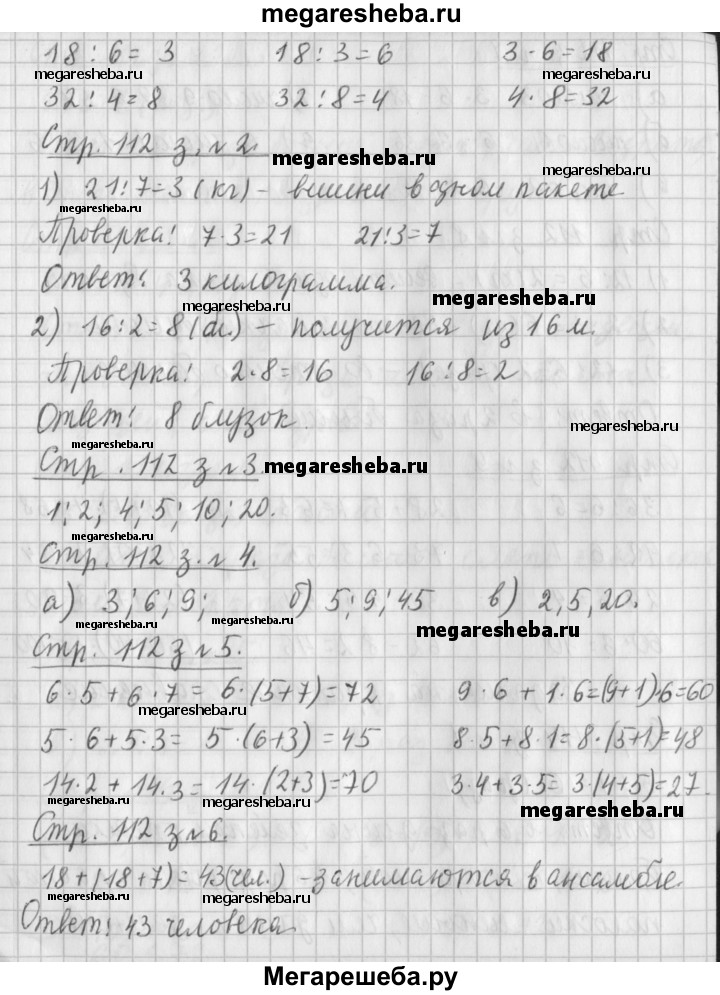 megaresheba.ru
18:6= 3 18:3=6 3·6=18
megaresheba.ru megaresheba.ru megaresheba.ru
32:4=8 32:8=4 4·8=32
Стр. 112 з. № 2.
megaresheba.ru megaresheba.ru
1) 21:7=3 (кг) - вишни в одном пакете
Проверка: 7·3=21 21:3=7
Ответ: 3 килограмма.
megaresheba.ru megaresheba.ru
2) 16:2=8 (бл.) - получится из 16 м.
Проверка: 2·8=16 16:8=2
Ответ: 8 блузок.
megaresheba.ru megaresheba.ru
Стр. 112 з № 3. megaresheba.ru
1; 2; 4; 5; 10; 20.
megaresheba.ru
Стр. 112 з. № 4.
а) 3; 6; 9; б) 5; 9; 45 в) 2, 5, 20.
megaresheba.ru megaresheba.ru megaresheba.ru
Стр. 112 з № 5.
6·5+6·7= 6·(5+7)=72 9·6+1·6=(9+1)·6=60
megaresheba.ru
5·6+5·3= 5·(6+3)=45 8·5+8·1=8·(5+1)=48
megaresheba.ru
14·2+14·3=14·(2+3)=70 3·4+3·5=3·(4+5)=27.
megaresheba.ru megaresheba.ru
Стр. 112 з № 6.
18+(18+7)=43(чел.) - занимаются в ансамбле.
megaresheba.ru
Ответ: 43 человека.
Мегарешеба.ру